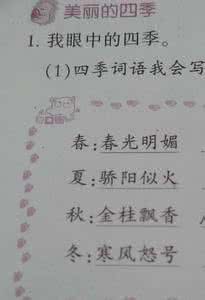 美丽的四季
1.我眼中的四季。
(1)四季词语我会写
春:春光明媚
夏:骄阳似火
秋:金桂飘香
冬:寒风怒号